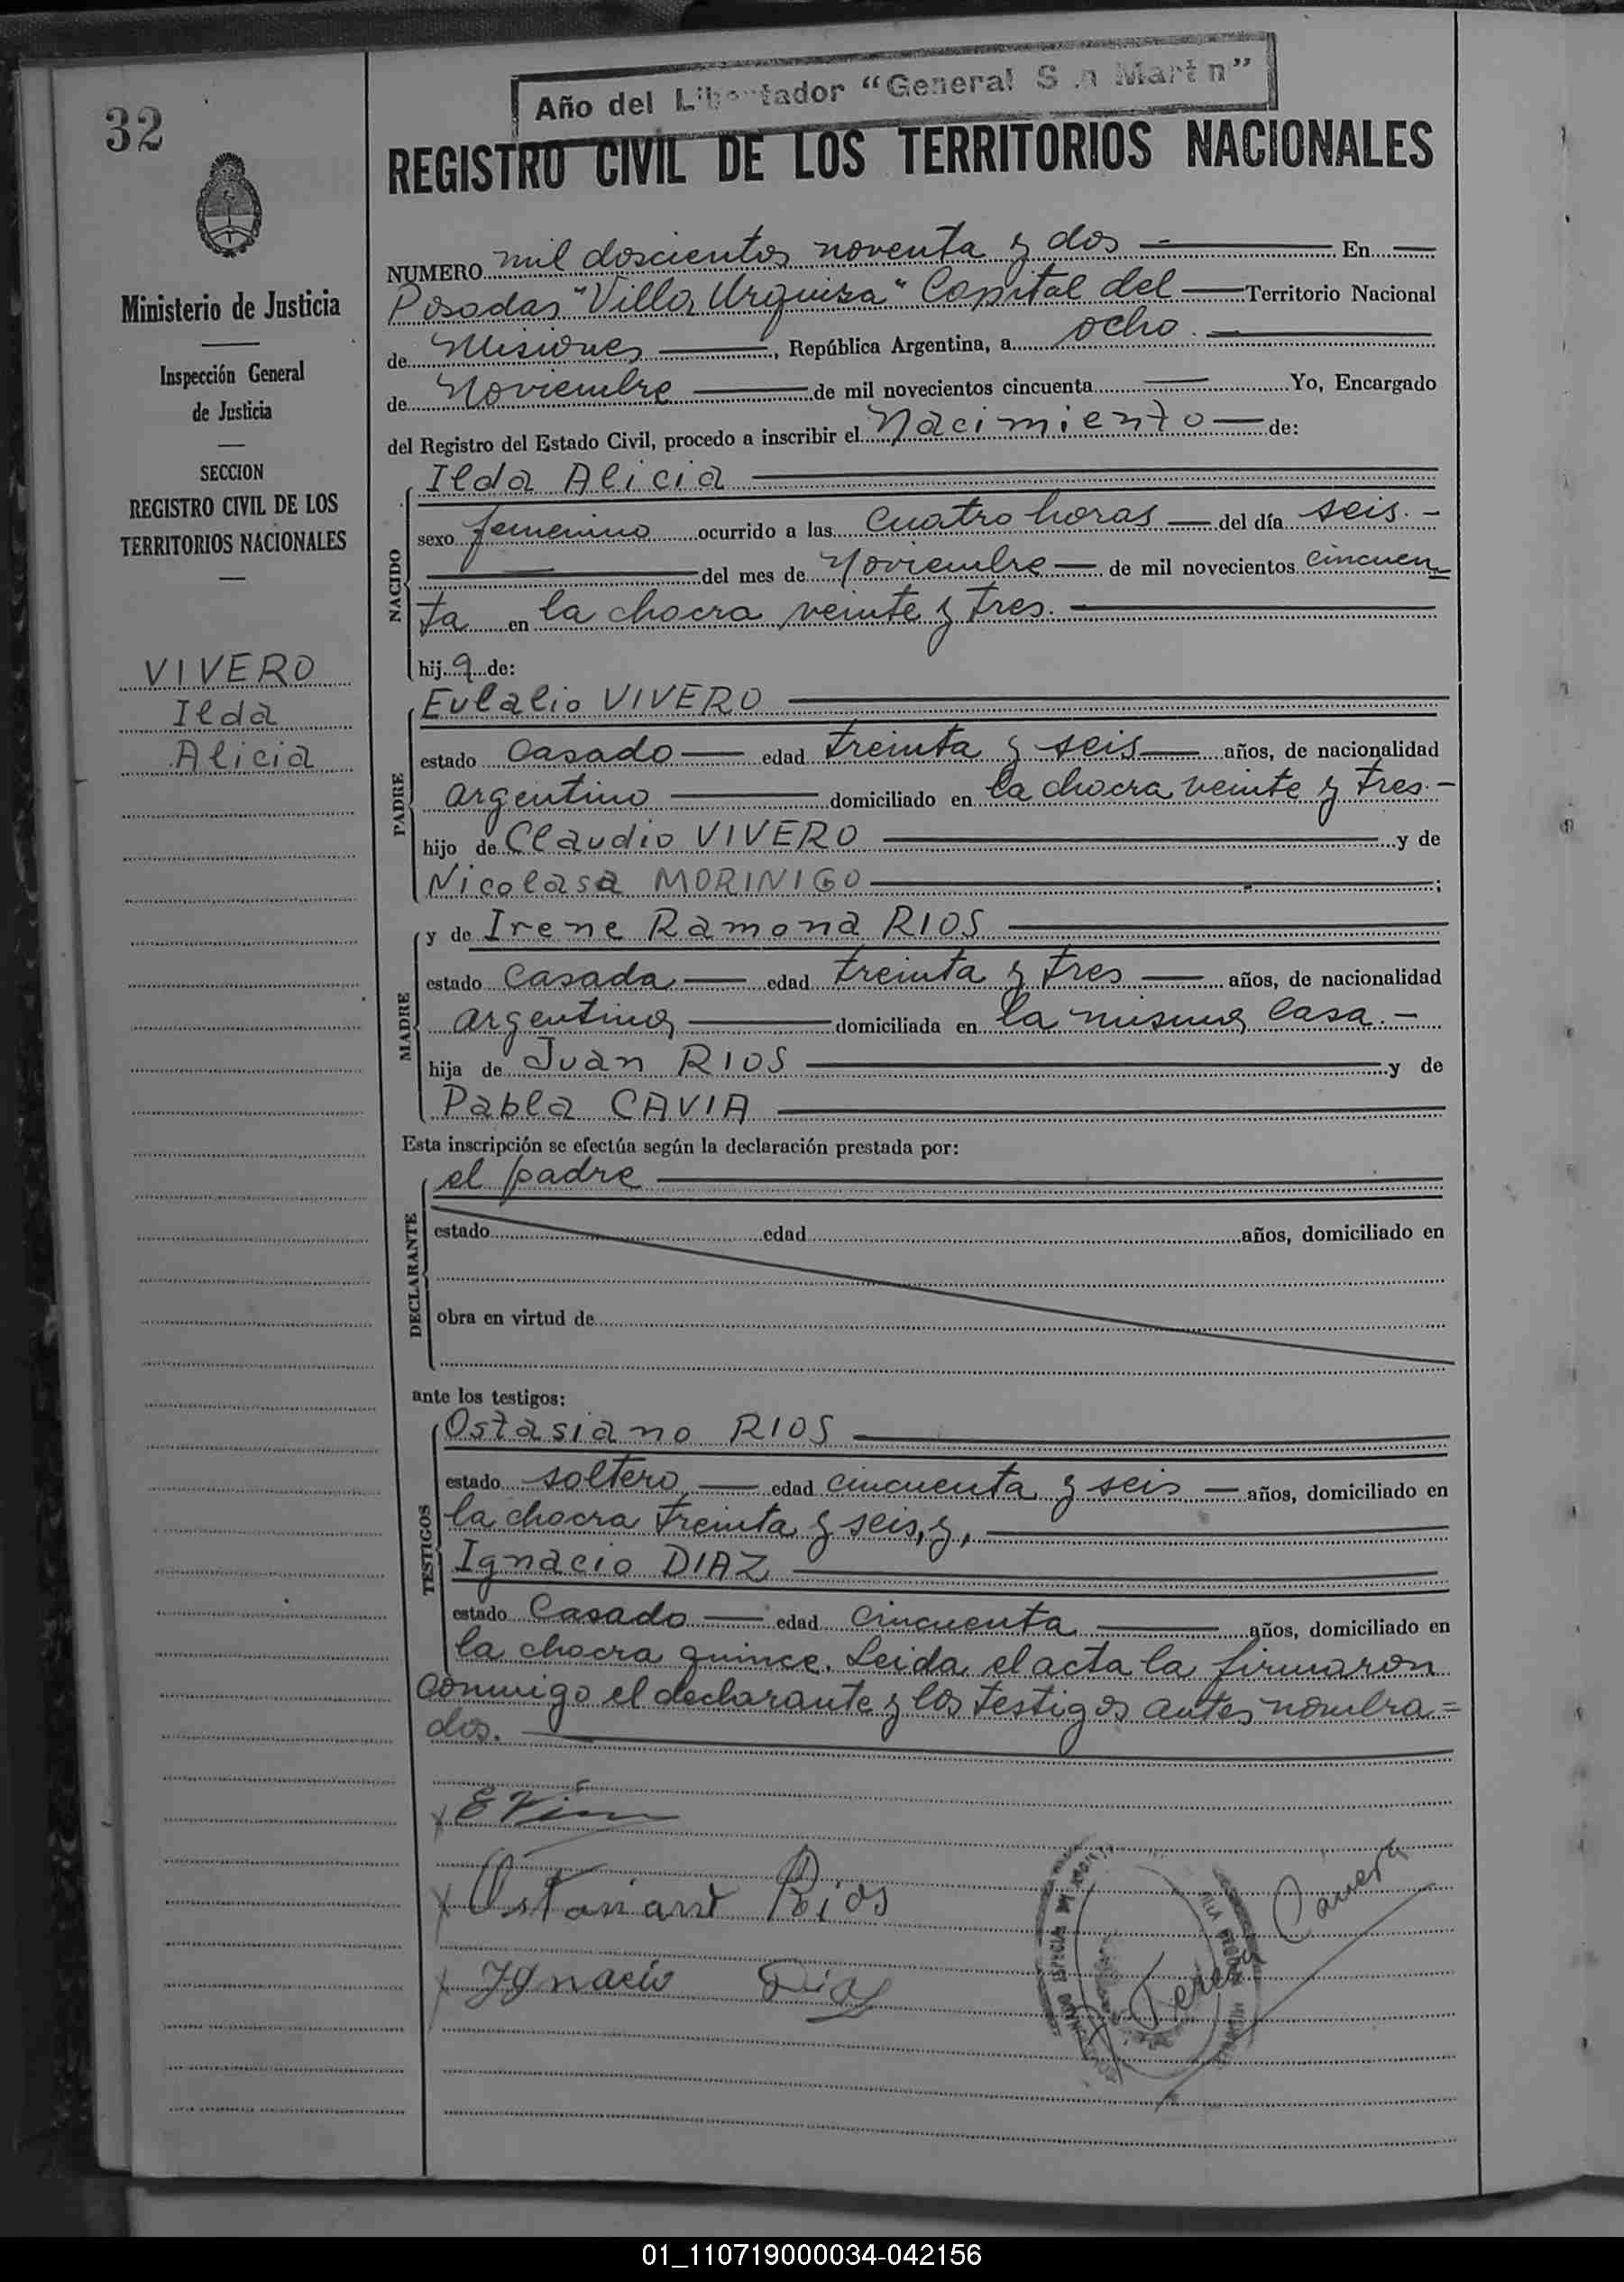 32
Año del Libertador "General San Martín"
REGISTRO CIVIL DE LOS TERRITORIOS NACIONALES
Ministerio de Justicia
Inspección General
de Justicia
SECCION
REGISTRO CIVIL DE LOS
TERRITORIOS NACIONALES
VIVERO
Ilda
Alicia
NUMERO mil doscientos noventa y dos En
Posadas "Villa Urquiza" Capital del Territorio Nacional
de Misiones, República Argentina, a ocho
de Noviembre de mil novecientos cincuenta Yo, Encargado
del Registro del Estado Civil, procedo a inscribir el Nacimiento de:
NACIDO
Ilda Alicia
sexo femenino ocurrido a las cuatro horas del día seis.
del mes de Noviembre de mil novecientos cincuen
ta en la chacra veinte y tres.
hija de:
PADRE
Eulalio VIVERO
estado casado edad treinta y seis años, de nacionalidad
argentino domiciliado en la chacra veinte y tres.
hijo de Claudio VIVERO y de
Nicolasa MORINIGO;
MADRE
y de Irene Ramona RIOS
estado casada edad treinta y tres años, de nacionalidad
argentina domiciliada en la misma casa.
hija de Juan RIOS y de
Pabla CAVIA
Esta inscripción se efectúa según la declaración prestada por:
DECLARANTE
el padre
estado edad años, domiciliado en
obra en virtud de
ante los testigos:
TESTIGOS
Ostasiano RIOS
estado soltero edad cincuenta y seis años, domiciliado en
la chacra treinta y seis, y,
Ignacio DIAZ
estado casado edad cincuenta años, domiciliado en
la chacra quince. Leida el acta la firmaron
conmigo el declarante y los testigos antes nombra=
dos.
Ostasiano Rios
Ignacio Diaz
01_110719000034-042156